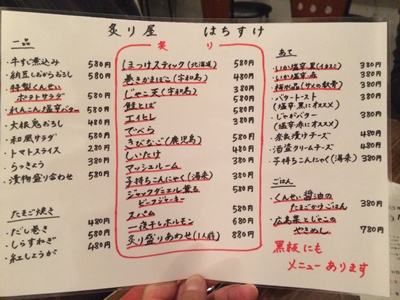 炙り屋 はちすけ
一品
・牛すじ煮込み 580円
・納豆しおからおろし 580円
・特製くんせいポテトサラダ 580円
・れんこん塩辛バター 580円
・大根鬼おろし 480円
・和風サラダ 580円
・トマトスライス 380円
・らっきょう 380円
・漬物盛り合わせ 580円
たまご焼き 480円
・だし巻き 580円
・しらすねぎ 480円
・紅しょうが 480円
炙り
ほっけスティック(北海道) 580円
巻きかまぼこ(宇和島) 480円
じゃこ天(宇和島) 380円
鮭とば 580円
エイヒレ 580円
でべら 580円
きびなご(鹿児島) 580円
しいたけ 480円
マッシュルーム 480円
子持ちこんにゃく(湯来) 380円
ジャックダニエル薫る
ビーフジャーキー 580円
スパム 580円
一夜干しホルモン 680円
炙り盛りあわせ(1人前) 880円
あて
・いか塩辛・黒(イチオシ) 380円
・いか塩辛・赤 380円
・梅水晶(サメの軟骨) 380円
・バタートースト 380円
(塩辛・黒にオススメ)
・じゃがバター 380円
(塩辛・赤にオススメ)
・奈良漬けチーズ 480円
・酒盗クリームチーズ 480円
・子持ちこんにゃく(湯来) 380円
ごはん
・くんせい醤油の
たまごかけごはん 380円
・広島菜とじゃこの
やきめし 780円
黒板にも
メニューあります